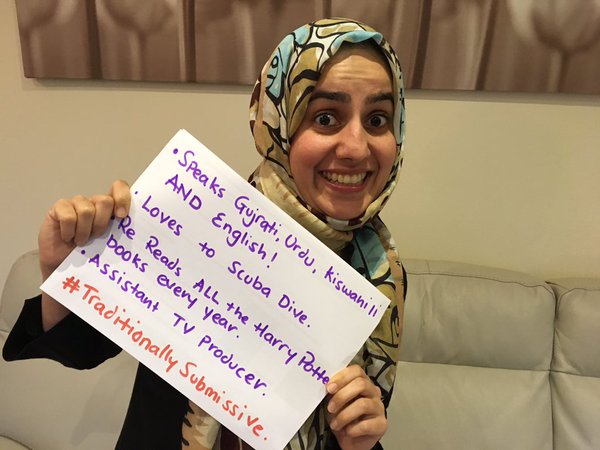 • Speaks Gujrati, Urdu, Kiswahili
AND English!
• Loves to Scuba Dive.
• Re Reads ALL the Harry Potter
books every year.
• Assistant TV Producer.
#Traditionally Submissive.